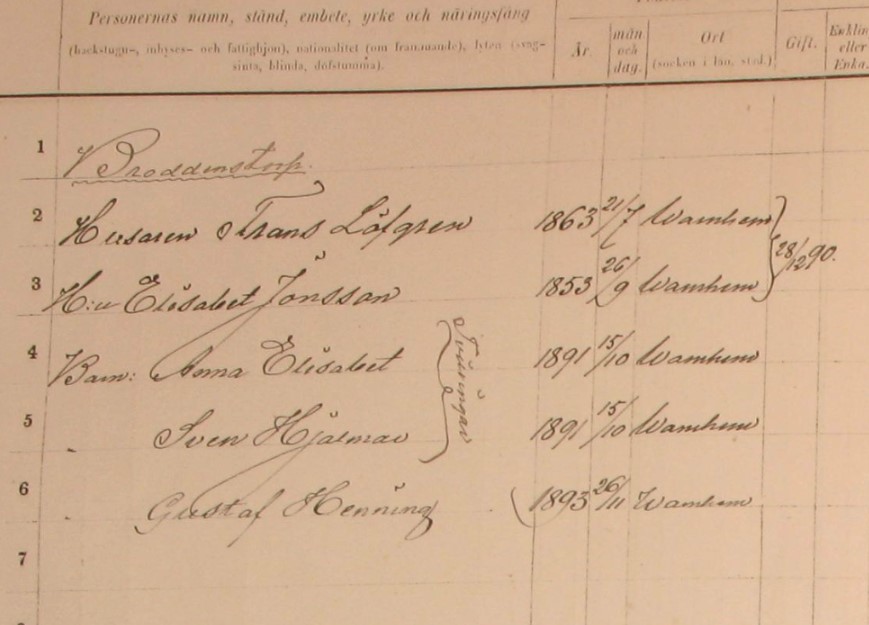 Personernas namn, stånd, embete, yrke och näringsfång
(backstugu-, inhyses- och fattighjon), nationalitet (om främmande), lyten (svag-
sinta, blinda, döfstumma).
År. mån. och dag. Ort (socken i län, stad.) Gift. Enkling eller Enka.
1 Broddenstorp.
2 Husaren Frans Löfgren 1863 21/7 Warnhem 28/12 90.
3 H:u Elisabet Jonsson 1853 26/9 Warnhem
4 Barn: Anna Elisabet 1891 15/10 Warnhem
Tvillingar
5 Sven Hjalmar 1891 15/10 Warnhem
6 Gustaf Henning 1893 26/11 Warnhem
7